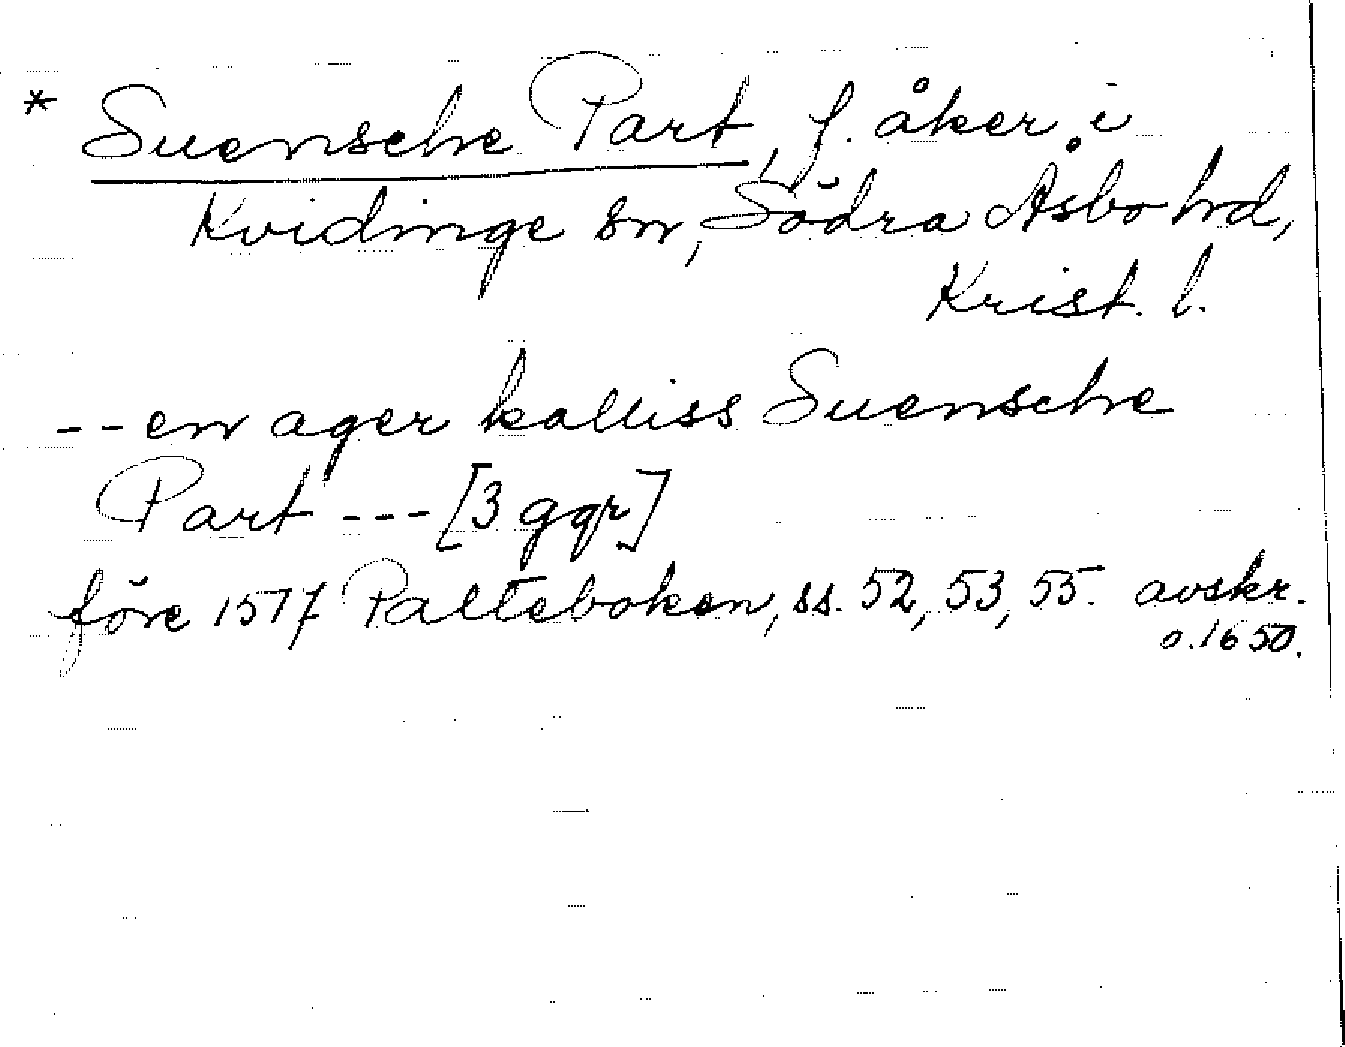 * Suensche Part, f. åker i
Kvidinge sn, Södra Åsbo hd,
Krist. l.
-- en ager kalliss Suensche
Part --- [3 ggr]
före 1577 Palteboken, ss. 52, 53, 55. avskr.
o. 1650.